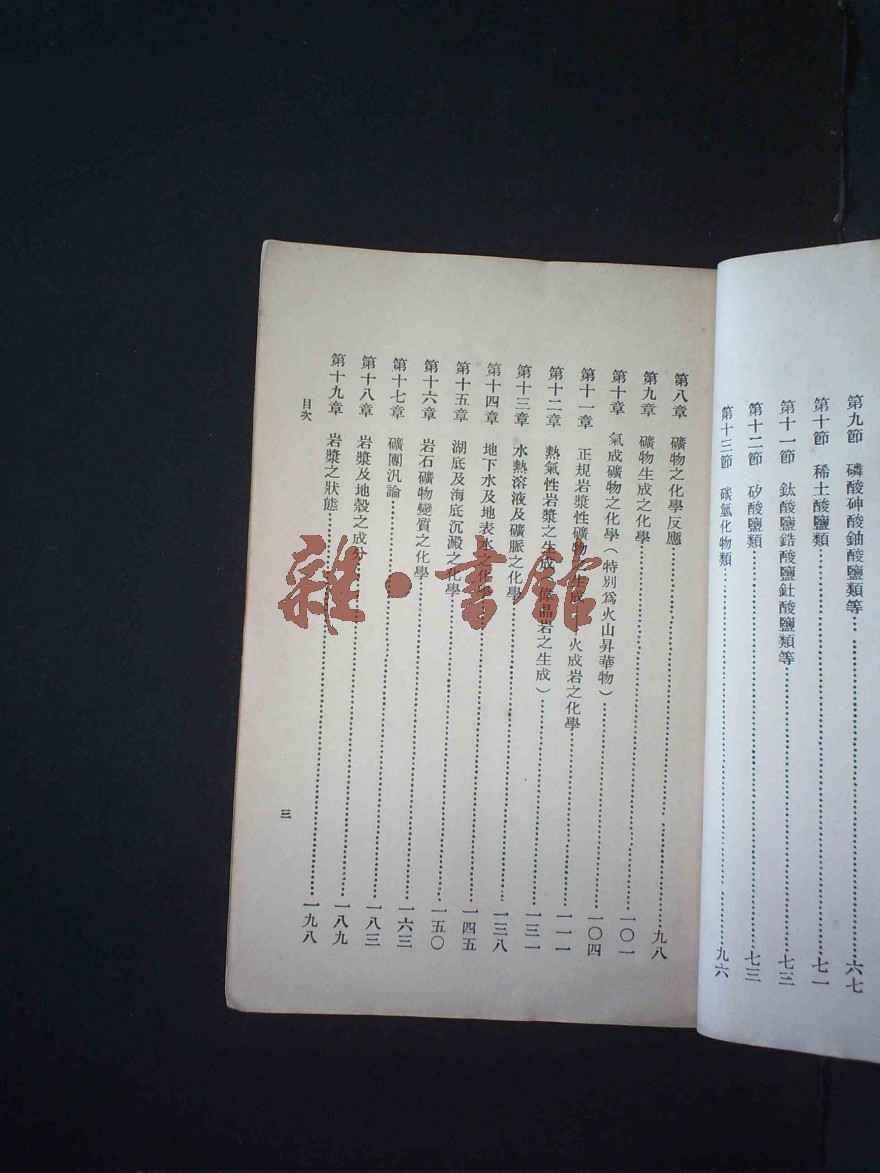 第九節 磷酸砷酸鈾酸鹽類等……六七
第十節 稀土酸鹽類……七一
第十一節 鈦酸鹽鋯酸鹽釷酸鹽類等……七三
第十二節 矽酸鹽類……七三
第十三節 碳氫化物類……九六
第八章 礦物之化學反應……九八
第九章 礦物生成之化學……一〇一
第十章 氣成礦物之化學（特別為火山昇華物）……一〇四
第十一章 正規岩漿性礦物之生成——火成岩之化學……一一一
第十二章 熱氣性岩漿之生成（偉晶岩之生成）……一三一
第十三章 水熱溶液及礦脈之化學……一三八
第十四章 地下水及地表水之化學……一四五
第十五章 湖底及海底沉澱之化學……一五〇
第十六章 岩石礦物變質之化學……一六三
第十七章 礦團汎論……一八三
第十八章 岩漿及地殼之成分……一八九
第十九章 岩漿之狀態……一九八
目次
三
雜·書館